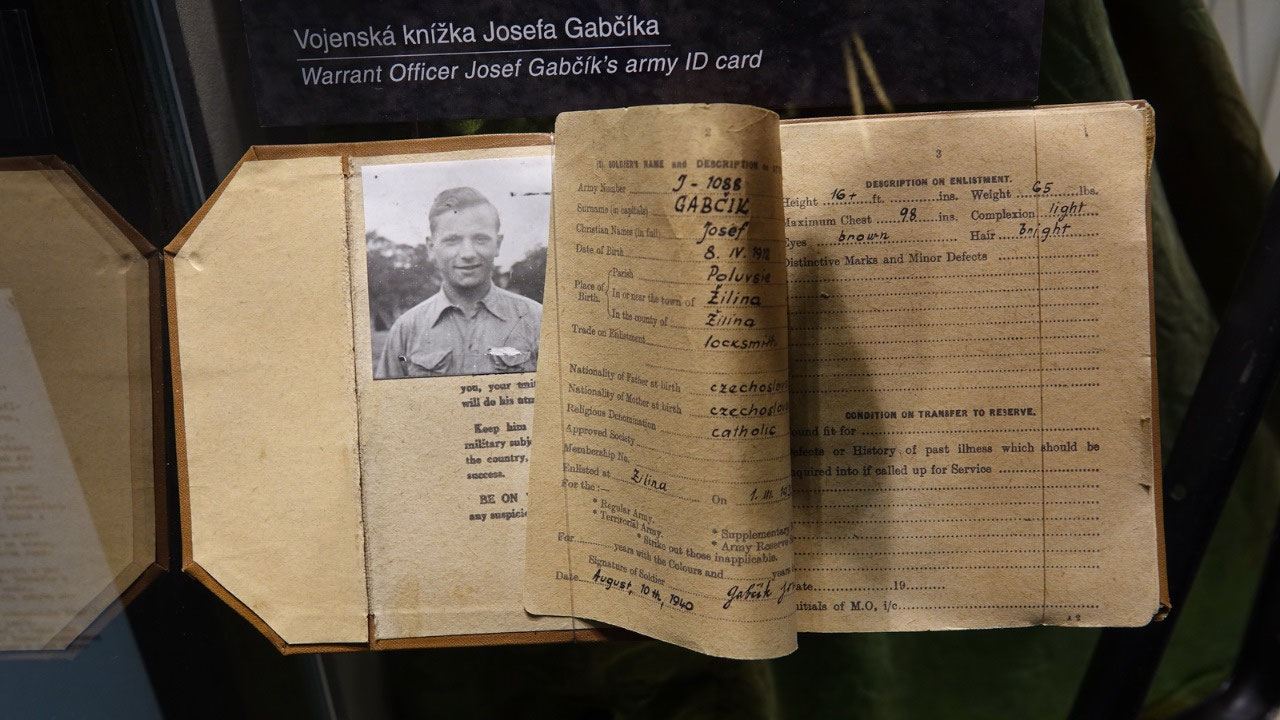 Vojenská knížka Josefa Gabčíka
Warrant Officer Josef Gabčík's army ID card
you, your
will do his
Keep him
military
the country,
success.
BE ON
any
2
SOLDIER'S NAME and DESCRIPTION
Army Number J-1088
Surname (in capitals) GABČIK
Christian Names (in full) Josef
Date of Birth 8. IV. 1912
Place of Birth.
Parish Poluvsie
In or near the town of Žilina
In the county of Žilina
Trade on Enlistment locksmith
Nationality of Father at birth
Nationality of Mother at birth
Religious Denomination catholic
Approved Society
Membership No.
Enlisted at Žilina On 1. III.
For the:—
* Regular Army.
* Territorial Army.
* Supplementary
* Army Reserve
* Strike out those inapplicable.
For years with the Colours and years
Signature of Soldier Gabčík
Date August, 10th, 1940
3
DESCRIPTION ON ENLISTMENT.
Height 16+ ft. ins. Weight 65 lbs.
Maximum Chest 98 ins. Complexion light
Eyes brown Hair bright
Distinctive Marks and Minor Defects
CONDITION ON TRANSFER TO RESERVE.
fit for
or History of past illness which should be
into if called up for Service
19
of M.O. i/c